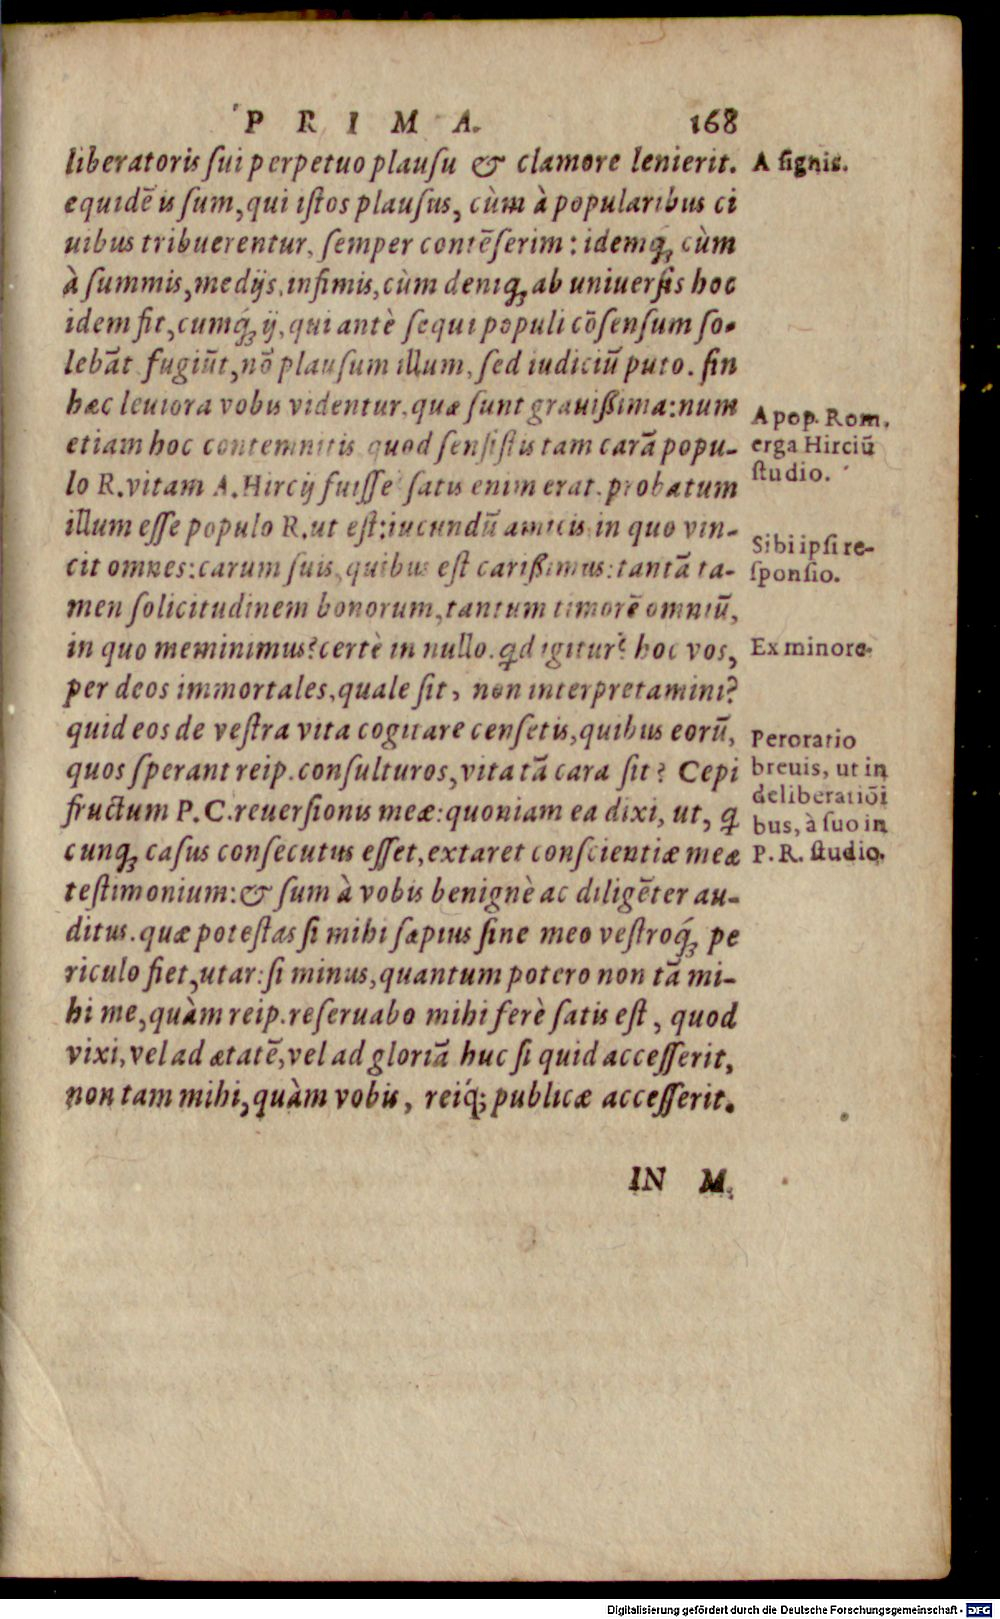 P R I M A. 168
liberatoris ſui perpetuo plauſu & clamore lenierit. A ſignis.
equidē is ſum, qui iſtos plauſus, cùm à popularibus ci
uibus tribuerentur, ſemper contēſerim: idemq́ꝫ cùm
à ſummis, medijs, infimis, cùm deniqꝫ ab uniuerſis hoc
idem fit, cumq́ꝫ ij, qui antè ſequi populi cōſenſum ſo-
lebāt fugiūt, nō plauſum illum, ſed iudiciū puto. ſin
hæc leuiora vobis videntur, quæ ſunt grauißima: num
etiam hoc contemnitis quod ſenſiſtis tam carā popu-
lo R. vitam A. Hircij fuiſſe ſatis enim erat. probatum
illum eſſe populo R. ut eſt: iucundū amicis in quo vin-
cit omnes: carum ſuis, quibus eſt carißimus: tantā ta-
men ſolicitudinem bonorum, tantum timorē omniū,
in quo meminimus? certè in nullo. qd igitur? hoc vos,
per deos immortales, quale ſit, non interpretamini?
quid eos de veſtra vita cogitare cenſetis, quibus eorū,
quos ſperant reip. conſulturos, vita tā cara ſit? Cepi
fructum P. C. reuerſionis meæ: quoniam ea dixi, ut, q
cunqꝫ caſus conſecutus eſſet, extaret conſcientiæ meæ
teſtimonium: & ſum à vobis benignè ac diligēter au-
ditus. quæ poteſtas ſi mihi ſæpius ſine meo veſtroq́ꝫ pe
riculo fiet, utar: ſi minus, quantum potero non tā mi-
hi me, quàm reip. reſeruabo mihi ferè ſatis eſt, quod
vixi, vel ad ætatē, vel ad gloriā huc ſi quid acceſſerit,
non tam mihi, quàm vobis, reiq́; publicæ acceſſerit.
A pop. Rom.
erga Hirciū
ſtudio.
Sibi ipſi re-
ſponſio.
Ex minore.
Peroratio
breuis, ut in
deliberatiōi
bus, à ſuo in
P. R. ſtudio.
IN M.
Digitalisierung gefördert durch die Deutsche Forschungsgemeinschaft - DFG